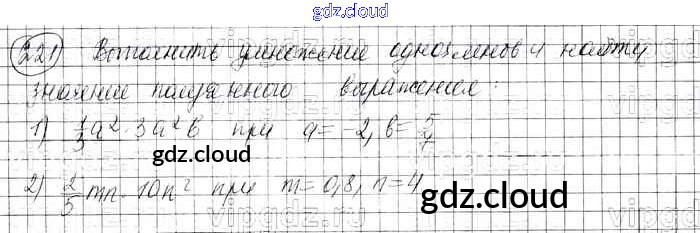 gdz.cloud
221) Выполнить умножение одночленов и найти
значение полученного выражения:
1) 1/3 a² · 3a²b при a = -2, b = 5/4
gdz.cloud
2) 2/5 mn · 10n² при m = 0,8, n = 4
gdz.cloud